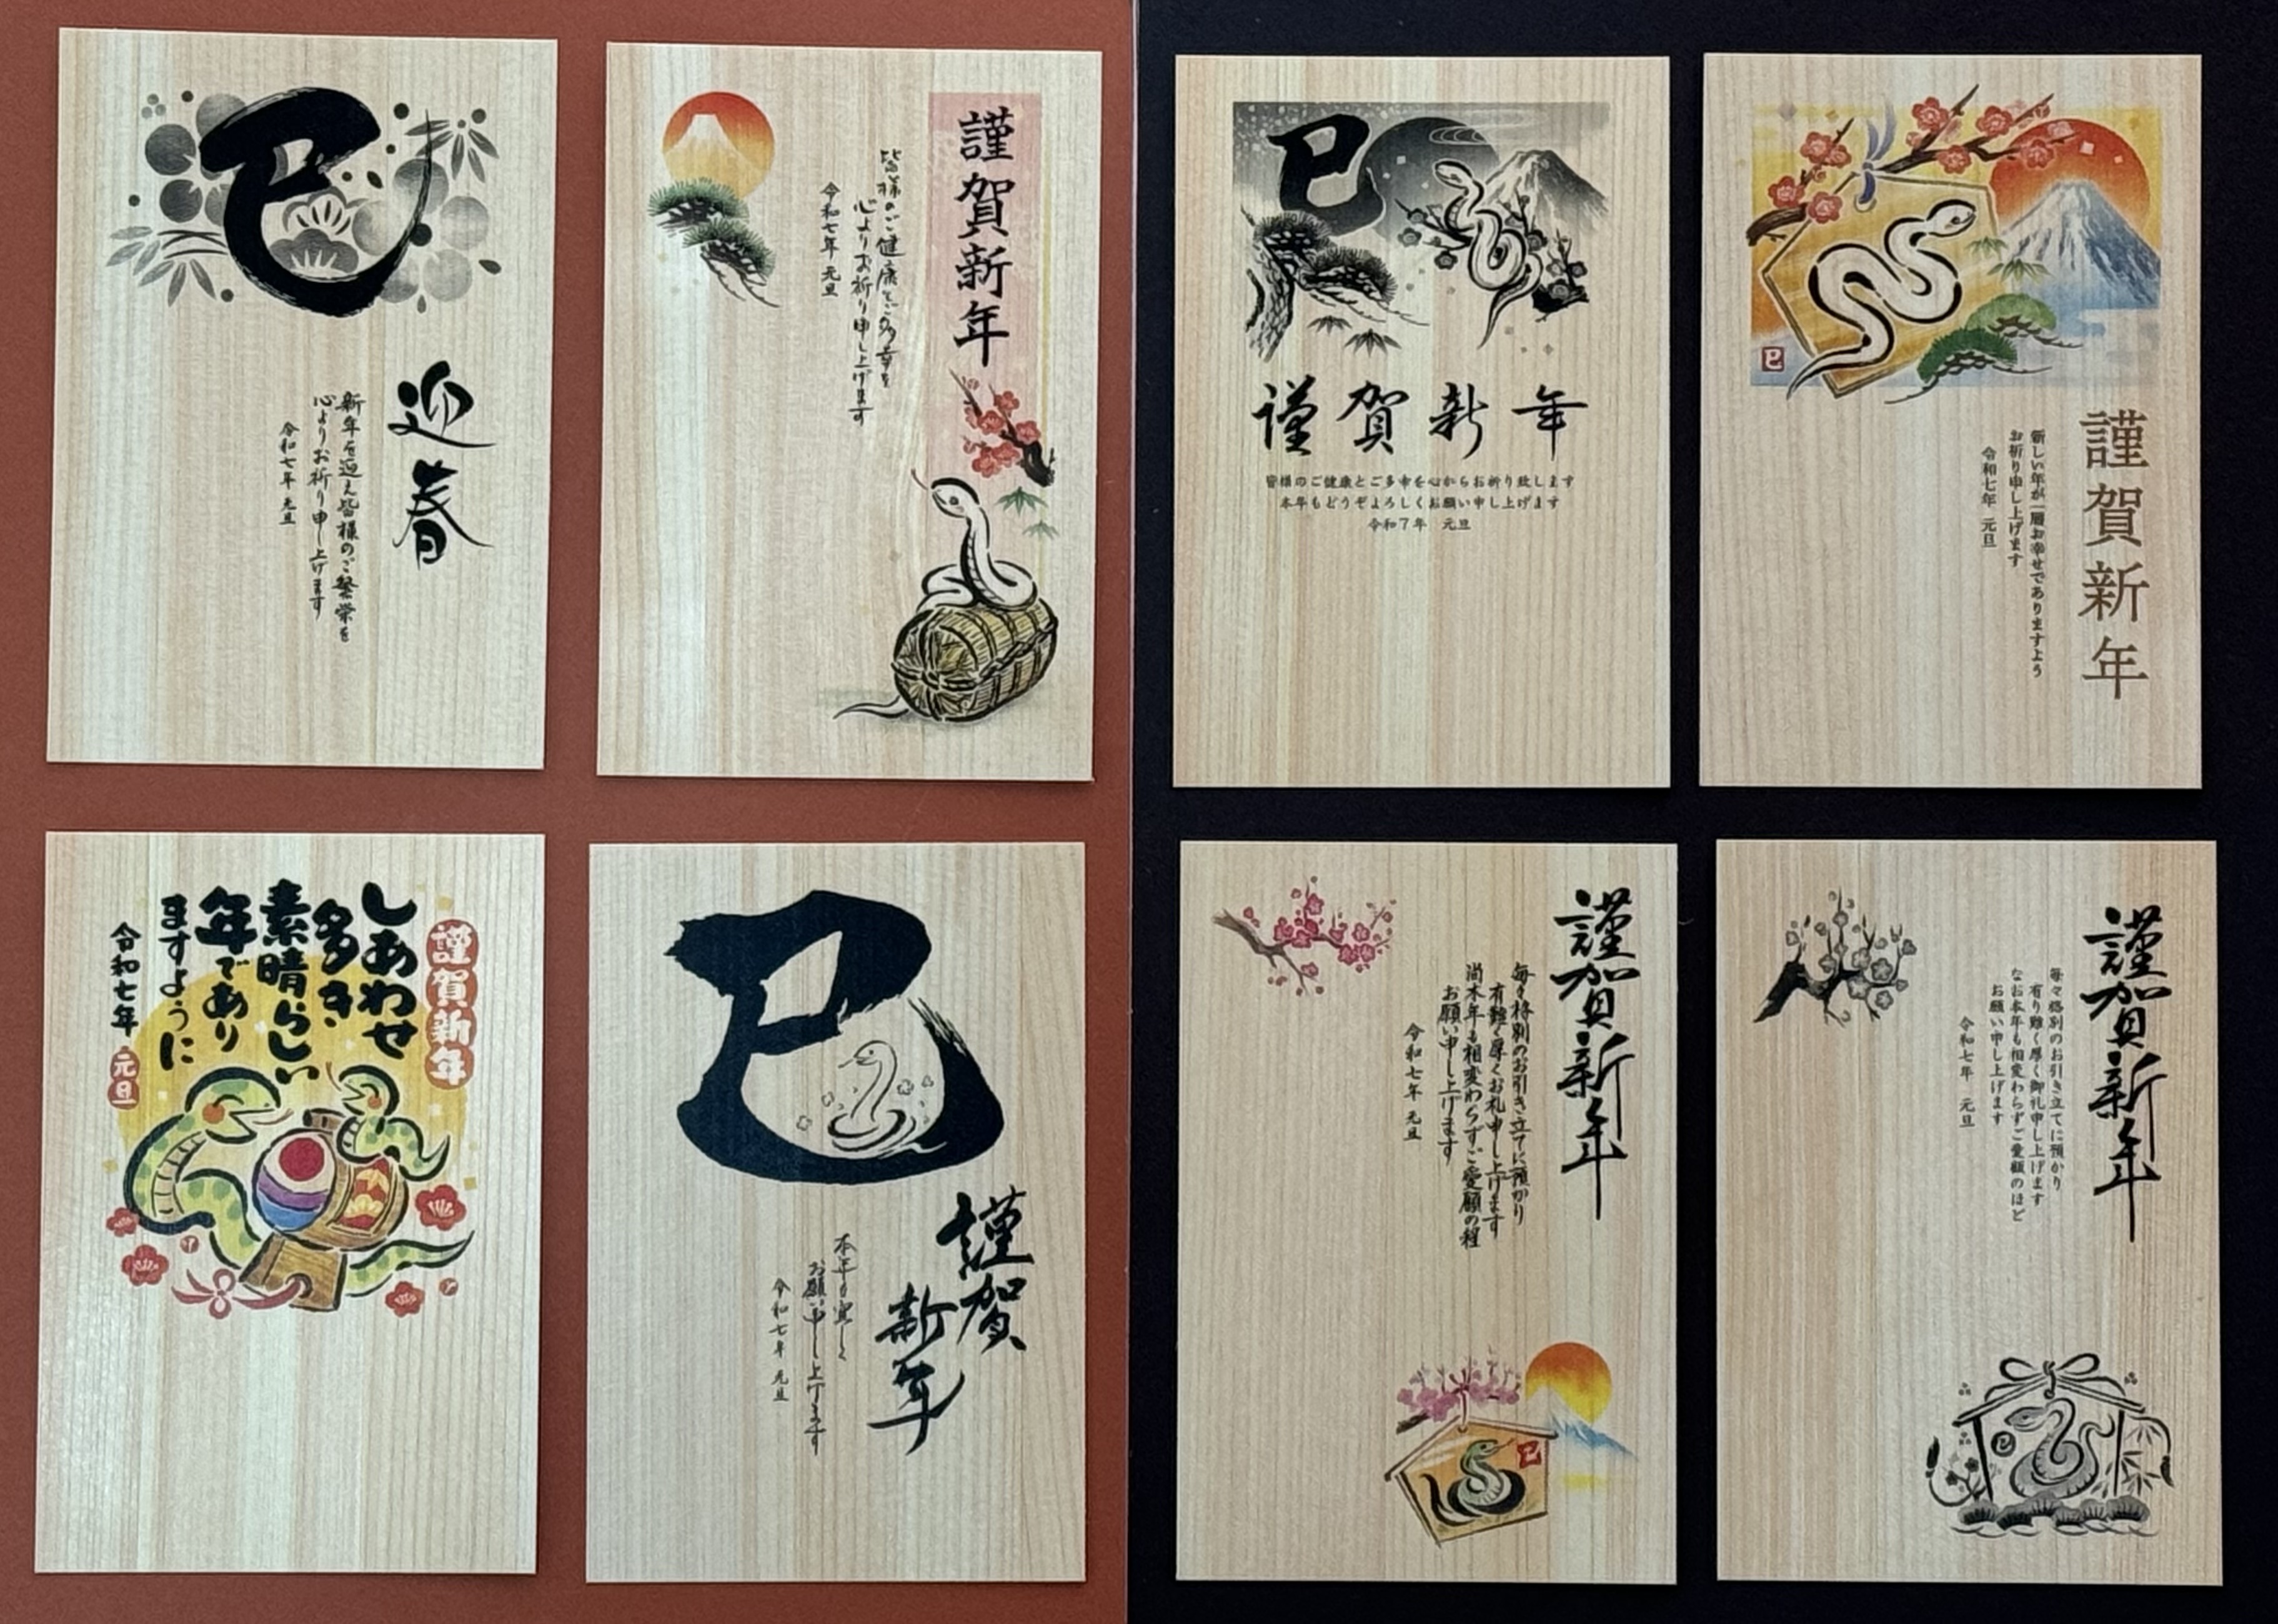 巳
迎春
新年を迎え皆様のご繁栄を
心よりお祈り申し上げます
令和七年 元旦
謹賀新年
皆様のご健康とご多幸を
心よりお祈り申し上げます
令和七年 元旦
巳
謹賀新年
皆様のご健康とご多幸を心からお祈り致します
本年もどうぞよろしくお願い申し上げます
令和7年 元旦
巳
謹賀新年
新しい年が一層お幸せでありますよう
お祈り申し上げます
令和七年 元旦
謹賀新年
しあわせ
多き
素晴らしい
年であり
ますように
令和七年 元旦
巳
謹賀
新年
本年も宜しく
お願い申し上げます
令和七年 元旦
謹賀新年
毎々格別のお引き立てに預かり
有難く厚くお礼申し上げます
尚本年も相変わらずご愛顧の程
お願い申し上げます
令和七年 元旦
巳
謹賀新年
毎々格別のお引き立てに預かり
有り難く厚く御礼申し上げます
なお本年も相変わらずご愛顧のほど
お願い申し上げます
令和七年 元旦
巳